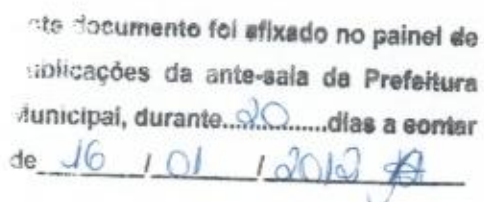 ste documento foi afixado no painel de
ublicações da ante-sala da Prefeitura
Municipal, durante....20........dias a contar
de 16 / 01 / 2012